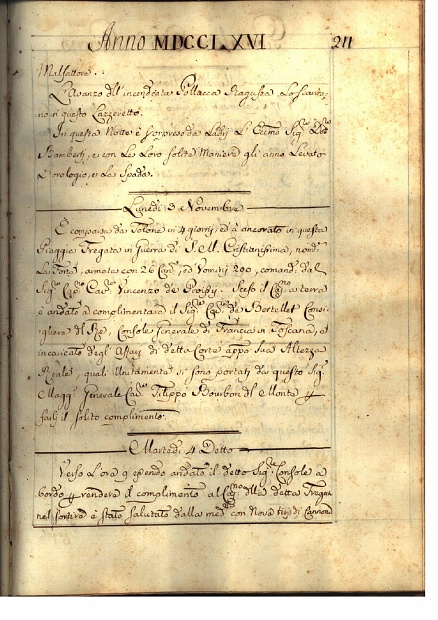 Anno MDCCLXVI 211
Malfattore.
L'Avanzo dell'incendiata Pollacca Ragusea Lo Scarica-
no in questo Lazzeretto.
In questa Notte è sorpreso da Ladri L'Ecc.mo Sig.re
Bamberti, e con Le Loro solite Maniere gli anno Levato
L'orologio, e La Spada.
Lunedì 3 Novembre
È comparsa da Tolone in 4 giorni, ed à ancorato in questa
Piaggia Fregata in Guerra di S. M. Cristianissima, nom.a
armata con 26 Can.i, ed Uomini 200, comand.a dal
Sig.re Cap.no Cav.re Vincenzo de . Sceso il a terra
è andato a complimentare il Sig.re Cav.re de Bertellet Consi-
gliere del Rè, Console Generale di Francia in Toscana, e
incaricato degl'Affari di detta Corte appo Sua Altezza
Reale quali Unitamente si sono portati da questo Sig.re
Magg.re Generale Cav.re Filippo Bourbon del Monte p
farli il solito complimento.
Martedì 4 Detto
Verso L'ora 9 essendo andato il detto Sig.re Console a
bordo p rendere il complimento al Cap.no della detta Fregata
nel sortire è stato salutato dalla med.a con Nove tiri di Cannone